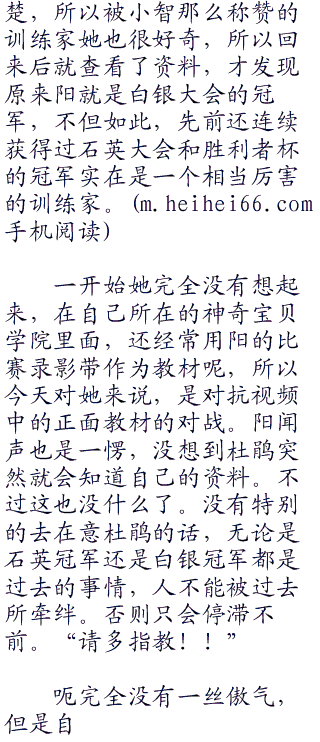 楚，所以被小智那么称赞的
训练家她也很好奇，所以回
来后就查看了资料，才发现
原来阳就是白银大会的冠
军，不但如此，先前还连续
获得过石英大会和胜利者杯
的冠军实在是一个相当厉害
的训练家。(m.heihei66.com
手机阅读)
一开始她完全没有想起
来，在自己所在的神奇宝贝
学院里面，还经常用阳的比
赛录影带作为教材呢，所以
今天对她来说，是对抗视频
中的正面教材的对战。阳闻
声也是一愣，没想到杜鹃突
然就会知道自己的资料。不
过这也没什么了。没有特别
的去在意杜鹃的话，无论是
石英冠军还是白银冠军都是
过去的事情，人不能被过去
所牵绊。否则只会停滞不
前。“请多指教！！”
呃完全没有一丝傲气，
但是自